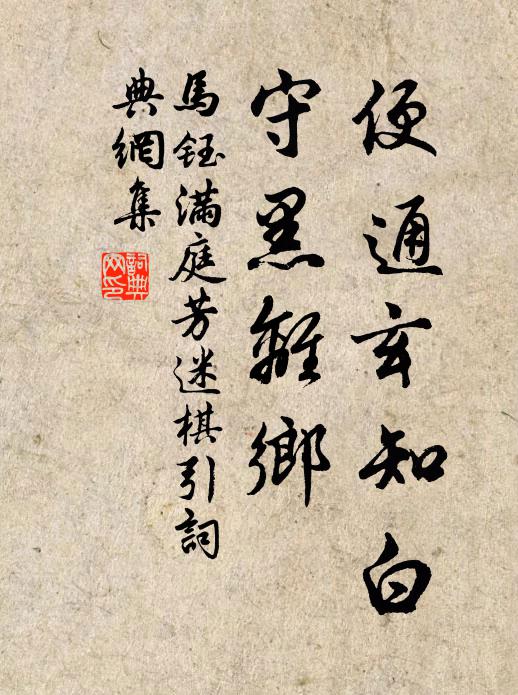 便通玄知白
守黑離鄉
馬鈺滿庭芳迷棋引詞
典網集
詞典
网印